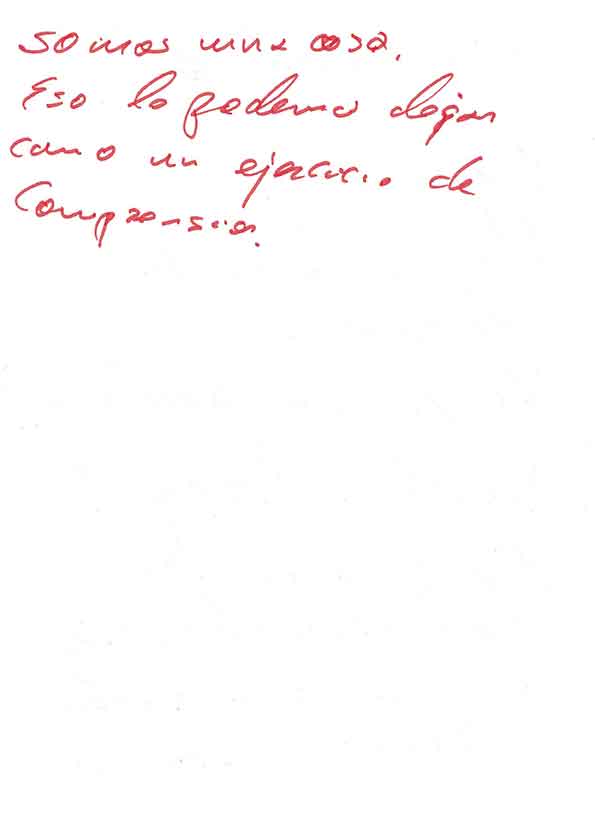 somos una cosa.
Eso lo podemos dejar
como un ejercicio de
comprensión.